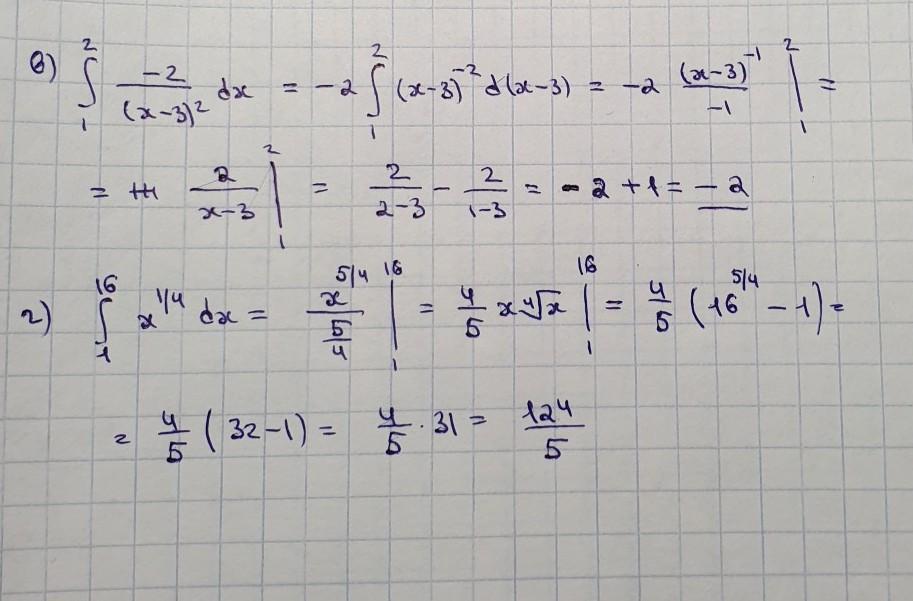 в) ∫₁² -2/(x-3)² dx = -2 ∫₁² (x-3)⁻² d(x-3) = -2 (x-3)⁻¹/-1 |₁² =
= 2/(x-3) |₁² = 2/(2-3) - 2/(1-3) = -2 + 1 = -2
г) ∫₁¹⁶ x^(1/4) dx = x^(5/4)/(5/4) |₁¹⁶ = 4/5 x ∜x |₁¹⁶ = 4/5 (16^(5/4) - 1) =
= 4/5 (32-1) = 4/5 · 31 = 124/5